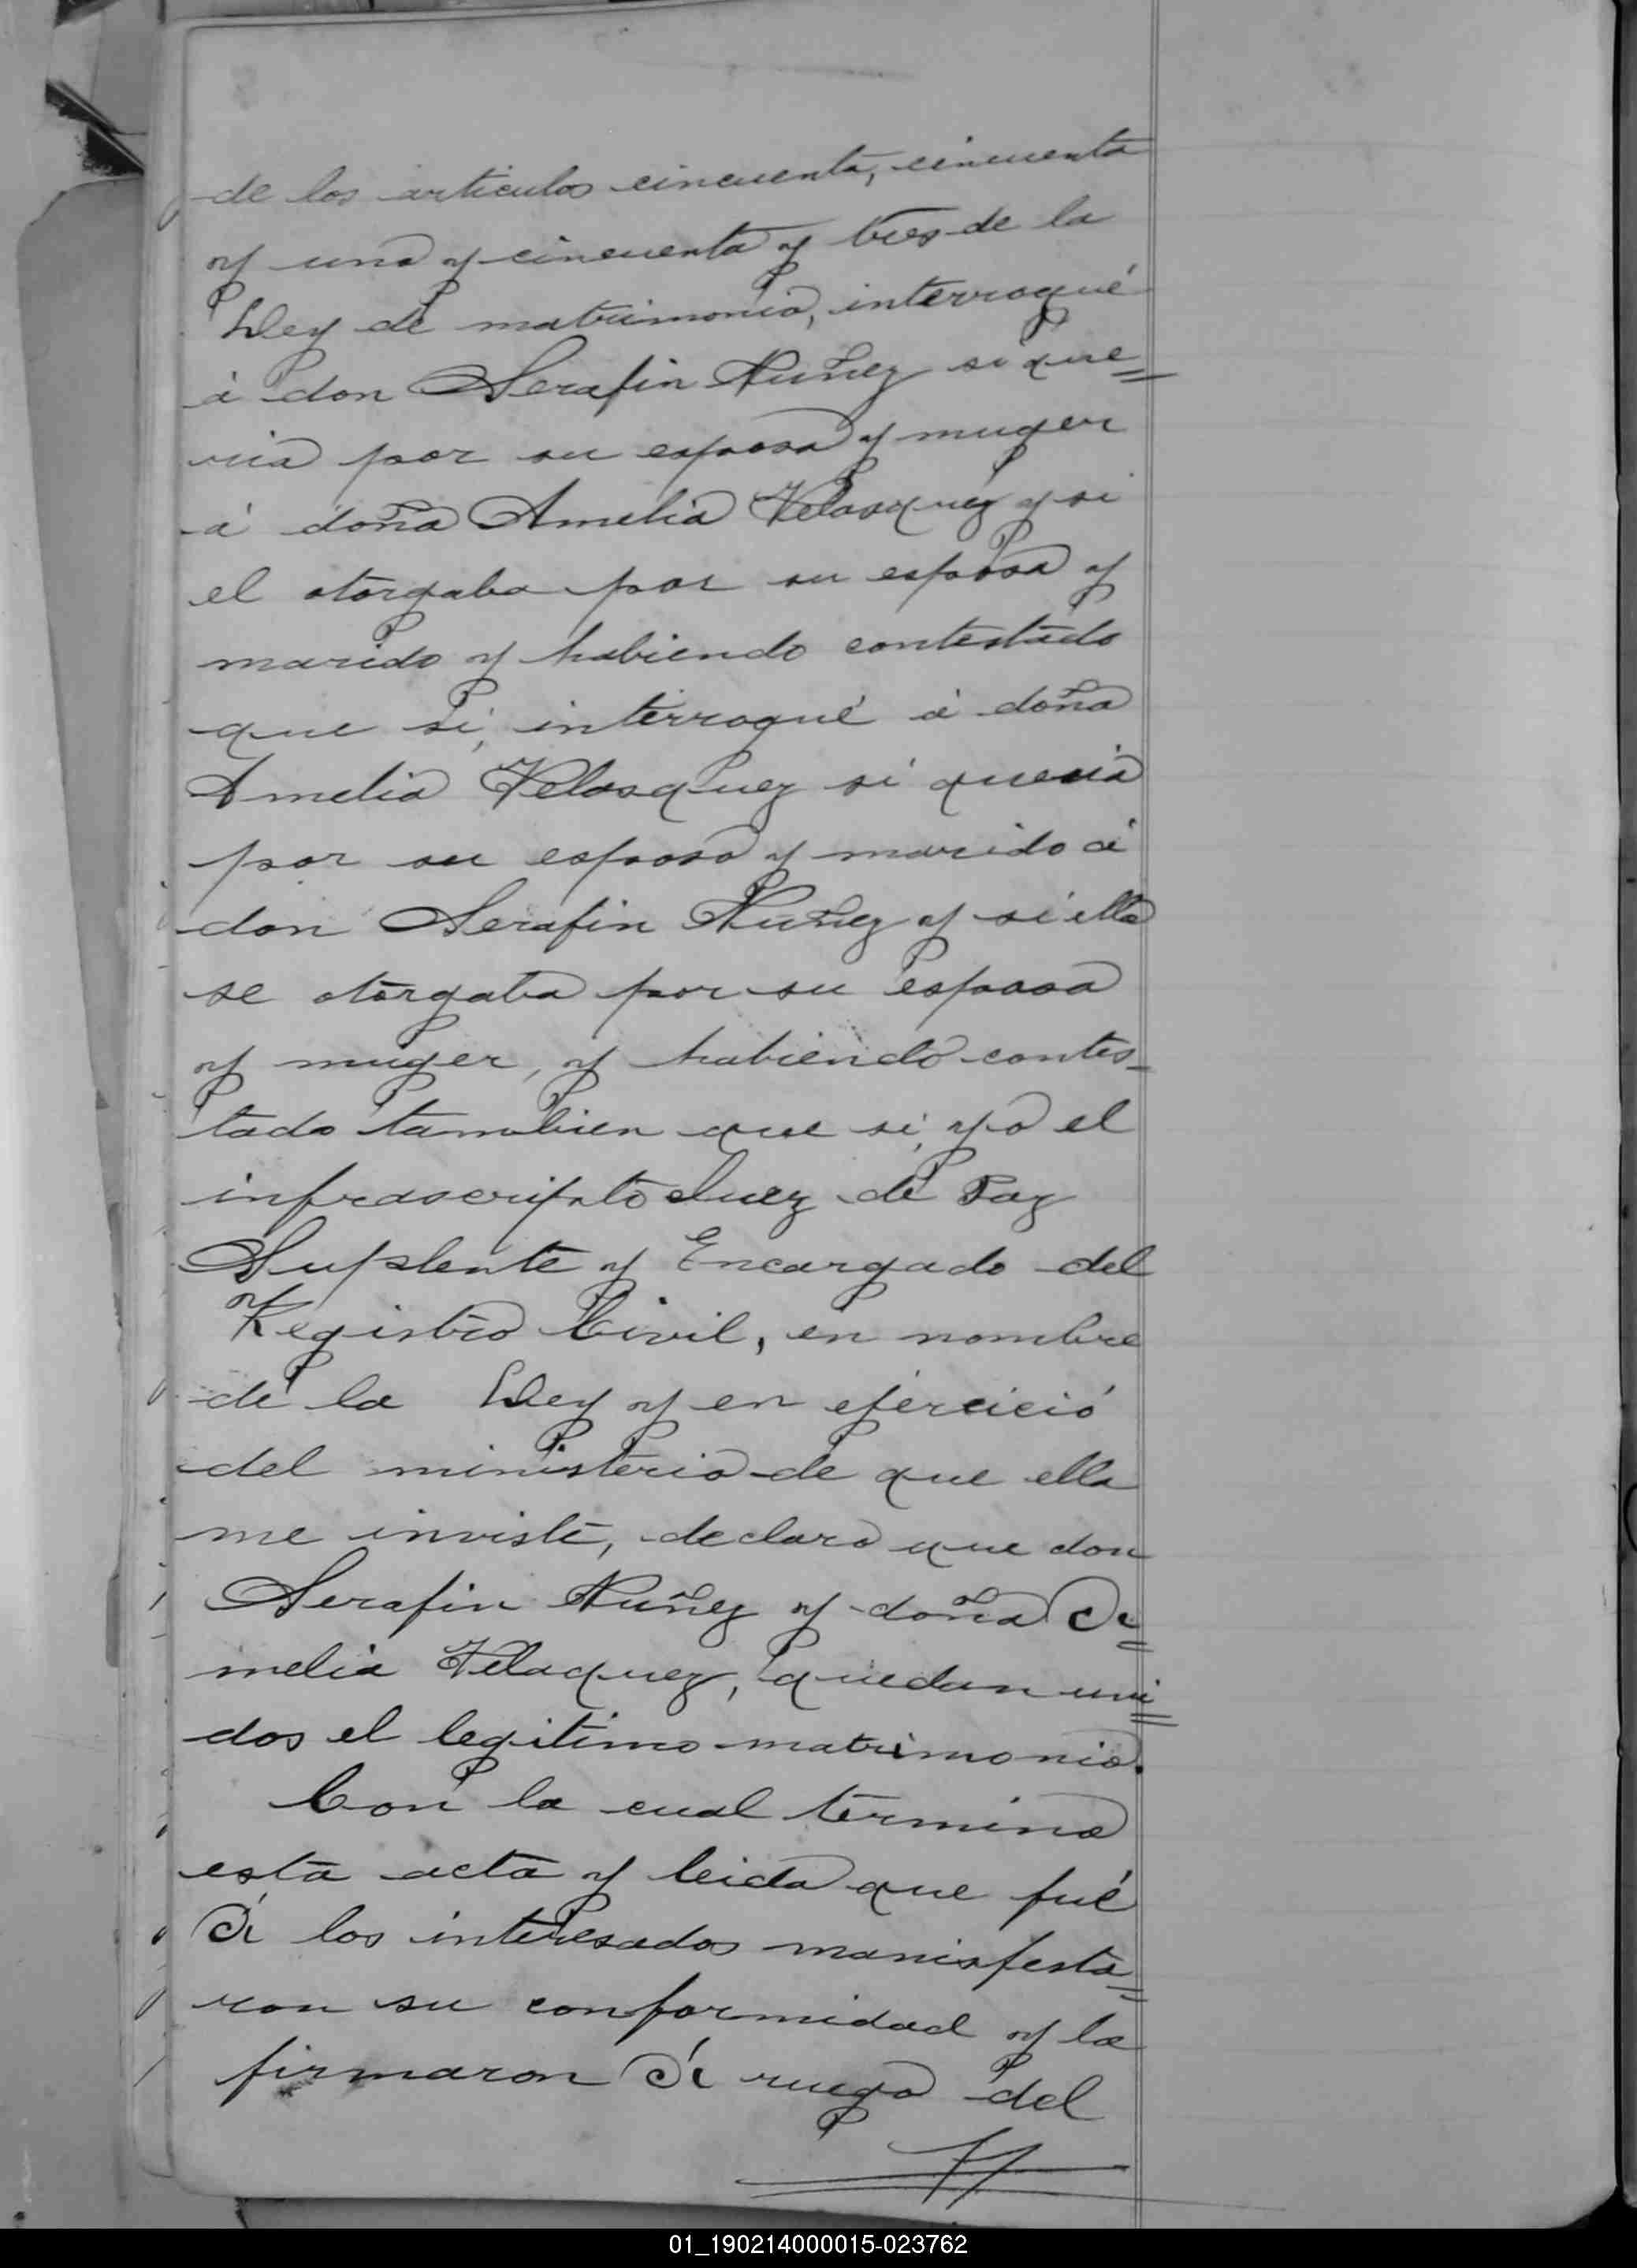 de los articulos cincuenta, cincuenta
y uno y cincuenta y tres de la
Ley de matrimonio, interrogué
á don Serafin Nuñez si que=
ria por su esposa y muger
á doña Amelia Velasquez y si
el otorgaba por su esposa y
marido y habiendo contestado
que si, interrogué á doña
Amelia Velasquez si queria
por su esposo y marido á
don Serafin Nuñez y si ella
se otorgaba por su esposa
y muger, y habiendo contes-
tado tambien que si, yo el
infrascripto Juez de Paz
Suplente y Encargado del
Registro Civil, en nombre
de la Ley y en ejercició
del ministerio de que ella
me inviste, declaro que don
Serafin Nuñez y doña A=
melia Velaquez, quedan uni=
dos el legitimo matrimonio.
Con la cual termino
esta acta y leida que fué
á los interesados manisfesta=
ron su conformidad y la
firmaron á ruego del
01_190214000015-023762